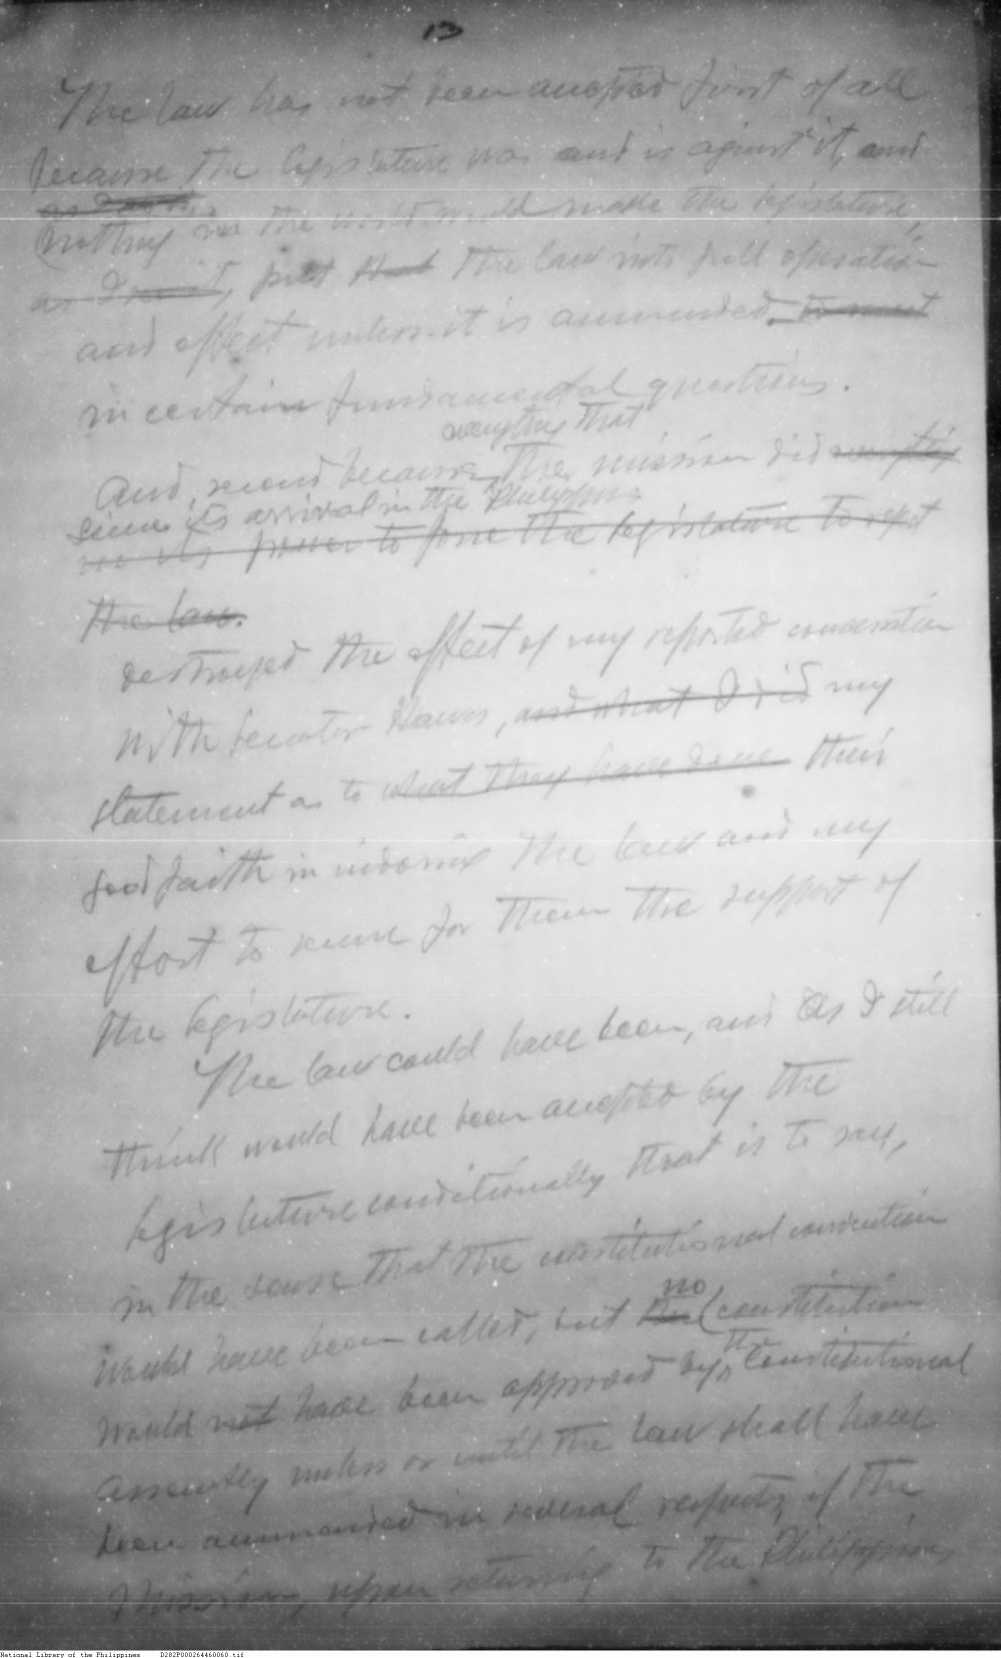 13
The law has not been accepted first of all
because the legislature was and is against it, and
nothing in the world would make the legislature,
as I said, put that the law into full operation
and effect unless it is ammended to meet
in certain fundamental questions.
everything that
And, second because, the mission did
since its arrival in the Philippines
power to force the legislature to reject
the law.
destroyed the effect of my reported conversation
with Senator Hawes, and what I did my
statement as to what they have done their
good faith in the law and my
effort to secure for them the support of
the legislature.
The law could have been, and as I still
think would have been accepted by the
legislature conditionally that is to say,
in the sense that the constitutional convention
would have been called, but no constitution
would not have been approved by the Constitutional
Assembly unless or until the law shall have
been ammended in several respects, if the
Mission, upon returning to the Philippines
National Library of the Philippines D282P000264460060.tif